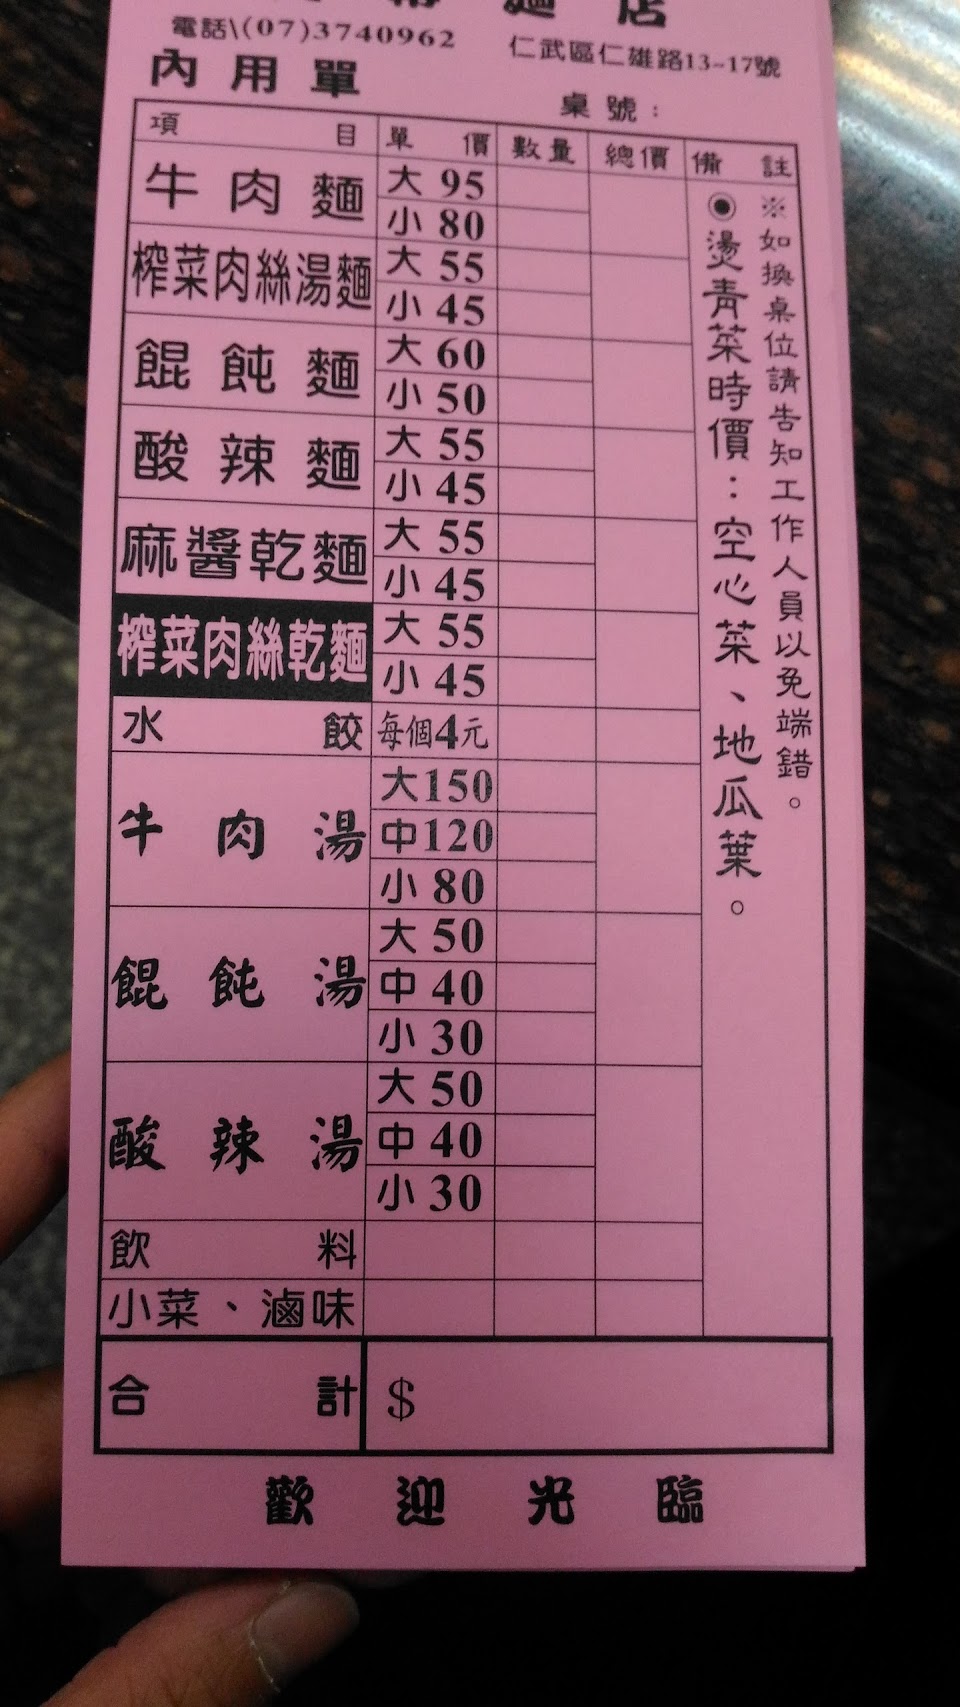 麵店
電話\(07)3740962
仁武區仁雄路13-17號
內用單
桌號：
項目 單價 數量 總價 備註
牛肉麵 大 95
小 80
榨菜肉絲湯麵 大 55
小 45
餛飩麵 大 60
小 50
酸辣麵 大 55
小 45
麻醬乾麵 大 55
小 45
榨菜肉絲乾麵 大 55
小 45
水餃 每個4元
牛肉湯 大150
中120
小 80
餛飩湯 大 50
中 40
小 30
酸辣湯 大 50
中 40
小 30
飲料
小菜、滷味
合計 $
※如換桌位請告知工作人員以免端錯。
◉燙青菜時價：空心菜、地瓜葉。
歡迎光臨